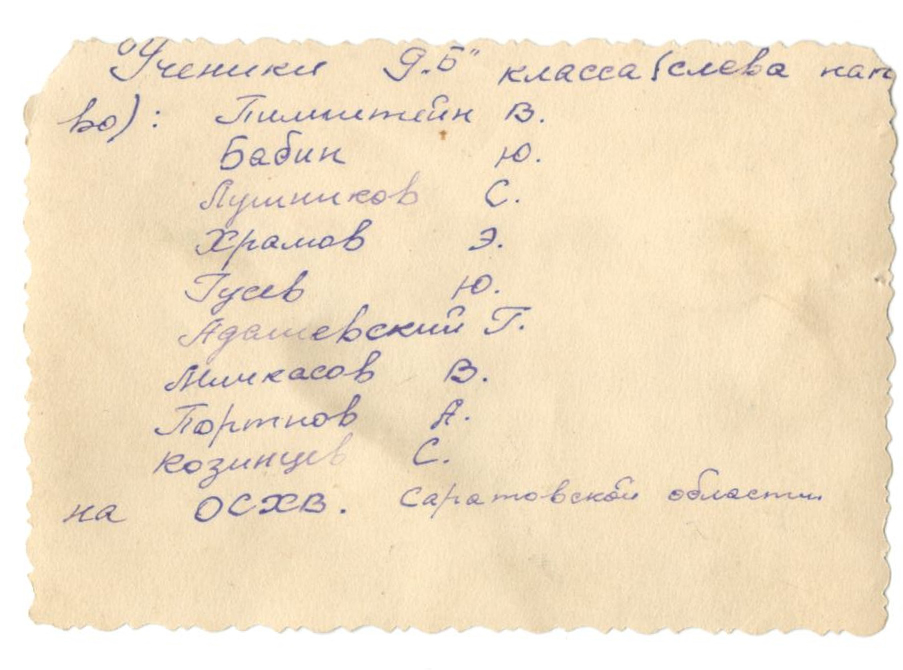 "Ученики 9.Б" класса (слева нап
во):  Пимштейн В.
Бабин Ю.
Лушников С.
Храмов Э.
Гусев Ю.
Адашевский Г.
Мичкасов В.
Портнов А.
Козинцев С.
на ОСХВ. Саратовской области